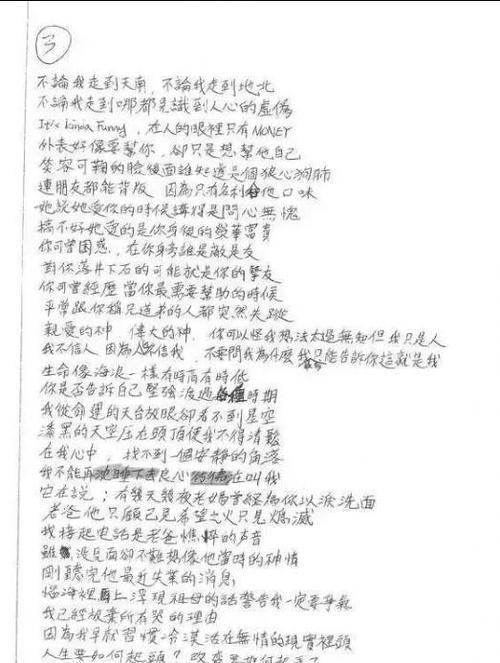 3
不論我走到天南,不論我走到地北
不論我走到哪都見識到人心的虛偽
It's kinda Funny,在人的眼裡只有MONEY
外表好像要幫你,卻只是想幫他自己
笑容可鞠的臉後面誰知道是個狼心狗肺
連朋友都能背叛 因為只有名利合他口味
她說她愛你的時候講得是問心無愧
搞不好她愛的是你身後的榮華富貴
你可曾困惑,在你身旁誰是敵是友
對你落井下石的可能就是你的摯友
你可曾經歷當你最需要幫助的時候
平常跟你稱兄道弟的人都突然失蹤
親愛的神 偉大的神,你可以怪我想法太過無知但我只是人
我不信人 因為人不信我,不要問我為什麼 我只能告訴你這就是我
生命像海浪一樣有時高有時低
你是否告訴自己堅強渡過 時期
我從命運的天台放眼卻看不到星空
漆黑的天空压在頭頂使我不得清鬆
在我心中,找不到一個安靜的角落
我不能再沈睡下去良心 在叫我
它在說;有幾天幾夜老媽曾經為你以淚洗面
老爸他只顧己見希望之火只見熄滅
我接起電話是老爸憔悴的声音
雖 沒見面卻不難想像他當時的神情
剛聽完他最近失業的消息
腦海裡馬上浮現祖母的話警告我一定要爭氣
我已經放棄所有哭的理由
因為我早就習慣冷漠活在無情的現實裡頭
人生要如何起頭?改變要如何起手?